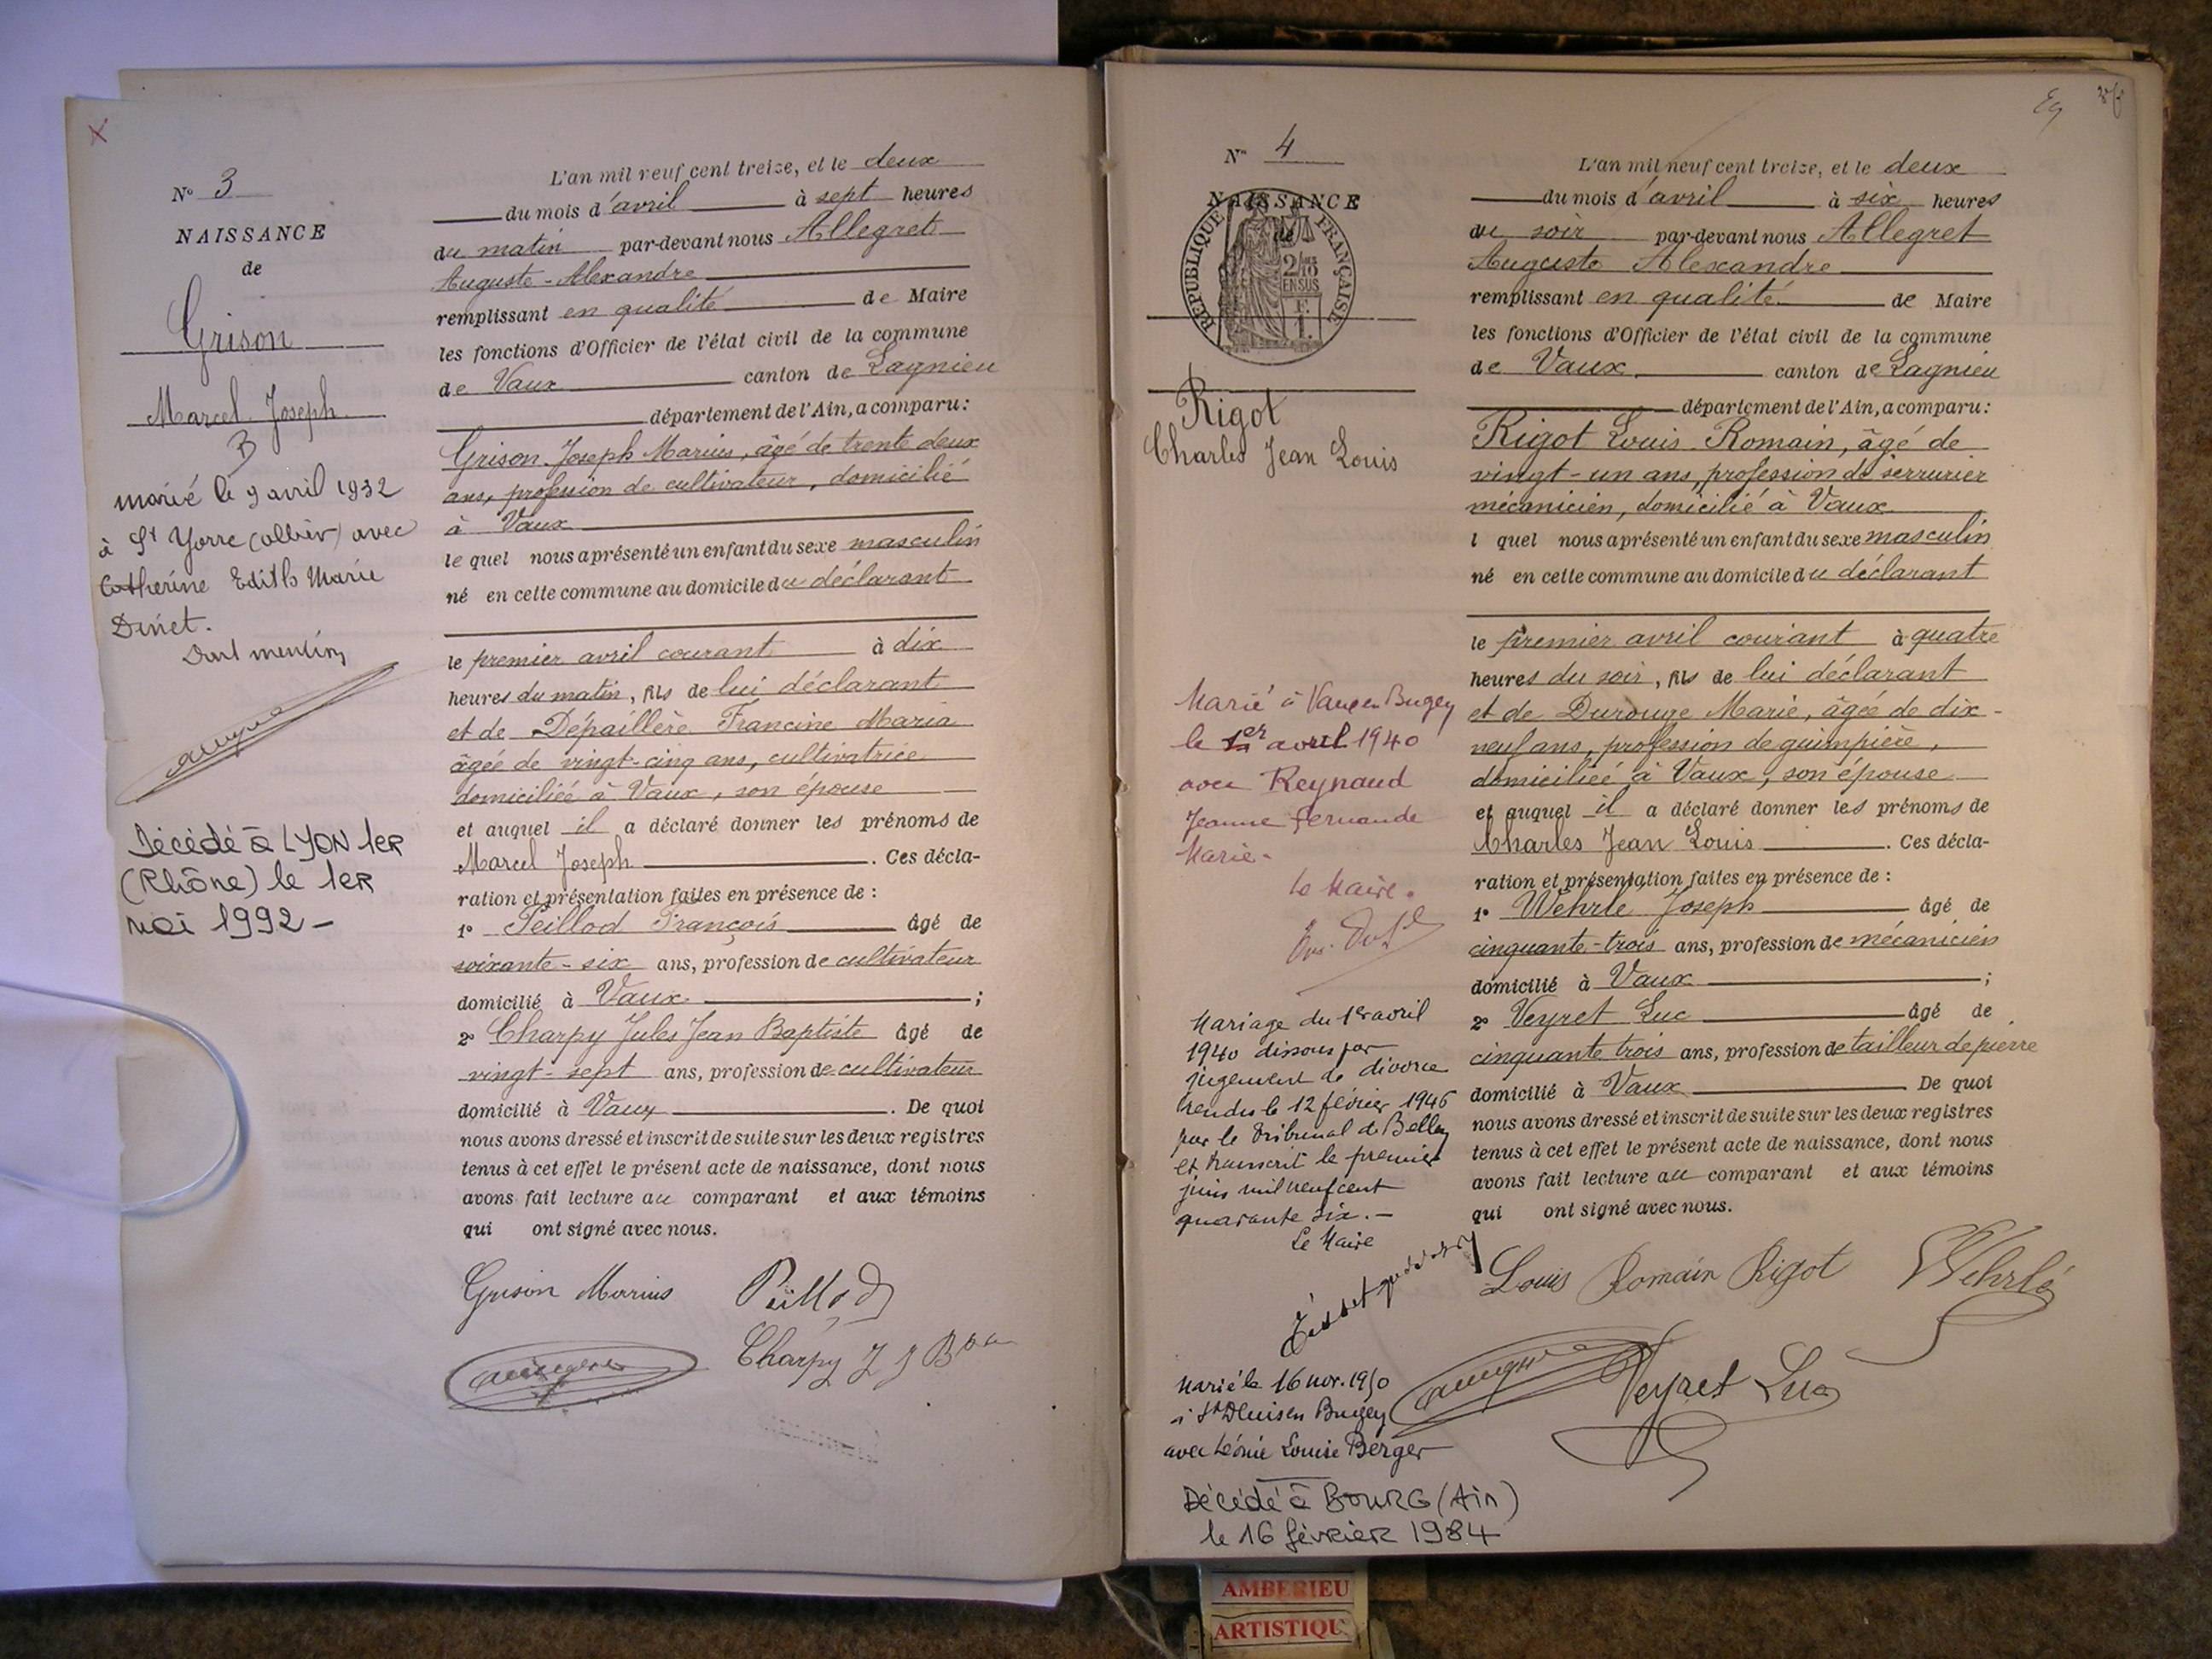 N° 3
NAISSANCE
de
Grison
Marcel Joseph
B
marié le 9 avril 1932
à St Yorre (allier) avec
Catherine Edith Marie
Dinet.
Dont mention
Décédé à LYON 1ER
(Rhône) le 1ER
mai 1992 -
L'an mil neuf cent treize, et le deux
du mois d'avril à sept heures
du matin par-devant nous Allegret
Auguste-Alexandre
remplissant en qualité de Maire
les fonctions d'Officier de l'état civil de la commune
de Vaux canton de Lagnieu
département de l'Ain, a comparu :
Grison Joseph Marius, âgé de trente deux
ans, profession de cultivateur, domicilié
à Vaux
le quel nous a présenté un enfant du sexe masculin
né en cette commune au domicile du déclarant
le premier avril courant à dix
heures du matin, fils de lui déclarant
et de Dépaillère Francine Maria
âgée de vingt-cinq ans, cultivatrice
domiciliée à Vaux, son épouse
et auquel il a déclaré donner les prénoms de
Marcel Joseph . Ces décla-
ration et présentation faites en présence de :
1° Peillod François âgé de
soixante-six ans, profession de cultivateur
domicilié à Vaux ;
2° Charpy Jules Jean Baptiste âgé de
vingt-sept ans, profession de cultivateur
domicilié à Vaux . De quoi
nous avons dressé et inscrit de suite sur les deux registres
tenus à cet effet le présent acte de naissance, dont nous
avons fait lecture au comparant et aux témoins
qui ont signé avec nous.
Grison Marius Peillod
Charpy J J Bte
N° 4
NAISSANCE
de
RÉPUBLIQUE FRANÇAISE
2/10
EN SUS
Rigot
Charles Jean Louis
Marié à Vaux en Bugey
le 1er avril 1940
avec Reynaud
Jeanne Fernande
Marie -
Le Maire.
Mariage du 1er avril
1940 dissous par
jugement de divorce
rendu le 12 février 1946
par le Tribunal de Belley
et transcrit le premier
juin mil neuf cent
quarante six. -
Le Maire
Marié le 16 nov. 1950
à St Denis en Bugey
avec Léonie Louise Berger
Décédé à BOURG (Ain)
le 16 février 1984
L'an mil neuf cent treize, et le deux
du mois d'avril à six heures
du soir par-devant nous Allegret
Auguste Alexandre
remplissant en qualité de Maire
les fonctions d'Officier de l'état civil de la commune
de Vaux canton de Lagnieu
département de l'Ain, a comparu :
Rigot Louis Romain, âgé de
vingt-un ans, profession de serrurier
mécanicien, domicilié à Vaux
l quel nous a présenté un enfant du sexe masculin
né en cette commune au domicile du déclarant
le premier avril courant à quatre
heures du soir, fils de lui déclarant
et de Durouge Marie, âgée de dix-
neuf ans, profession de guimpière,
domiciliée à Vaux, son épouse
et auquel il a déclaré donner les prénoms de
Charles Jean Louis . Ces décla-
ration et présentation faites en présence de :
1° Wehrlé Joseph âgé de
cinquante-trois ans, profession de mécanicien
domicilié à Vaux ;
2° Veyret Luc âgé de
cinquante trois ans, profession de tailleur de pierre
domicilié à Vaux De quoi
nous avons dressé et inscrit de suite sur les deux registres
tenus à cet effet le présent acte de naissance, dont nous
avons fait lecture au comparant et aux témoins
qui ont signé avec nous.
Louis Romain Rigot Wehrlé
Veyret Luc
AMBERIEU
ARTISTIQU